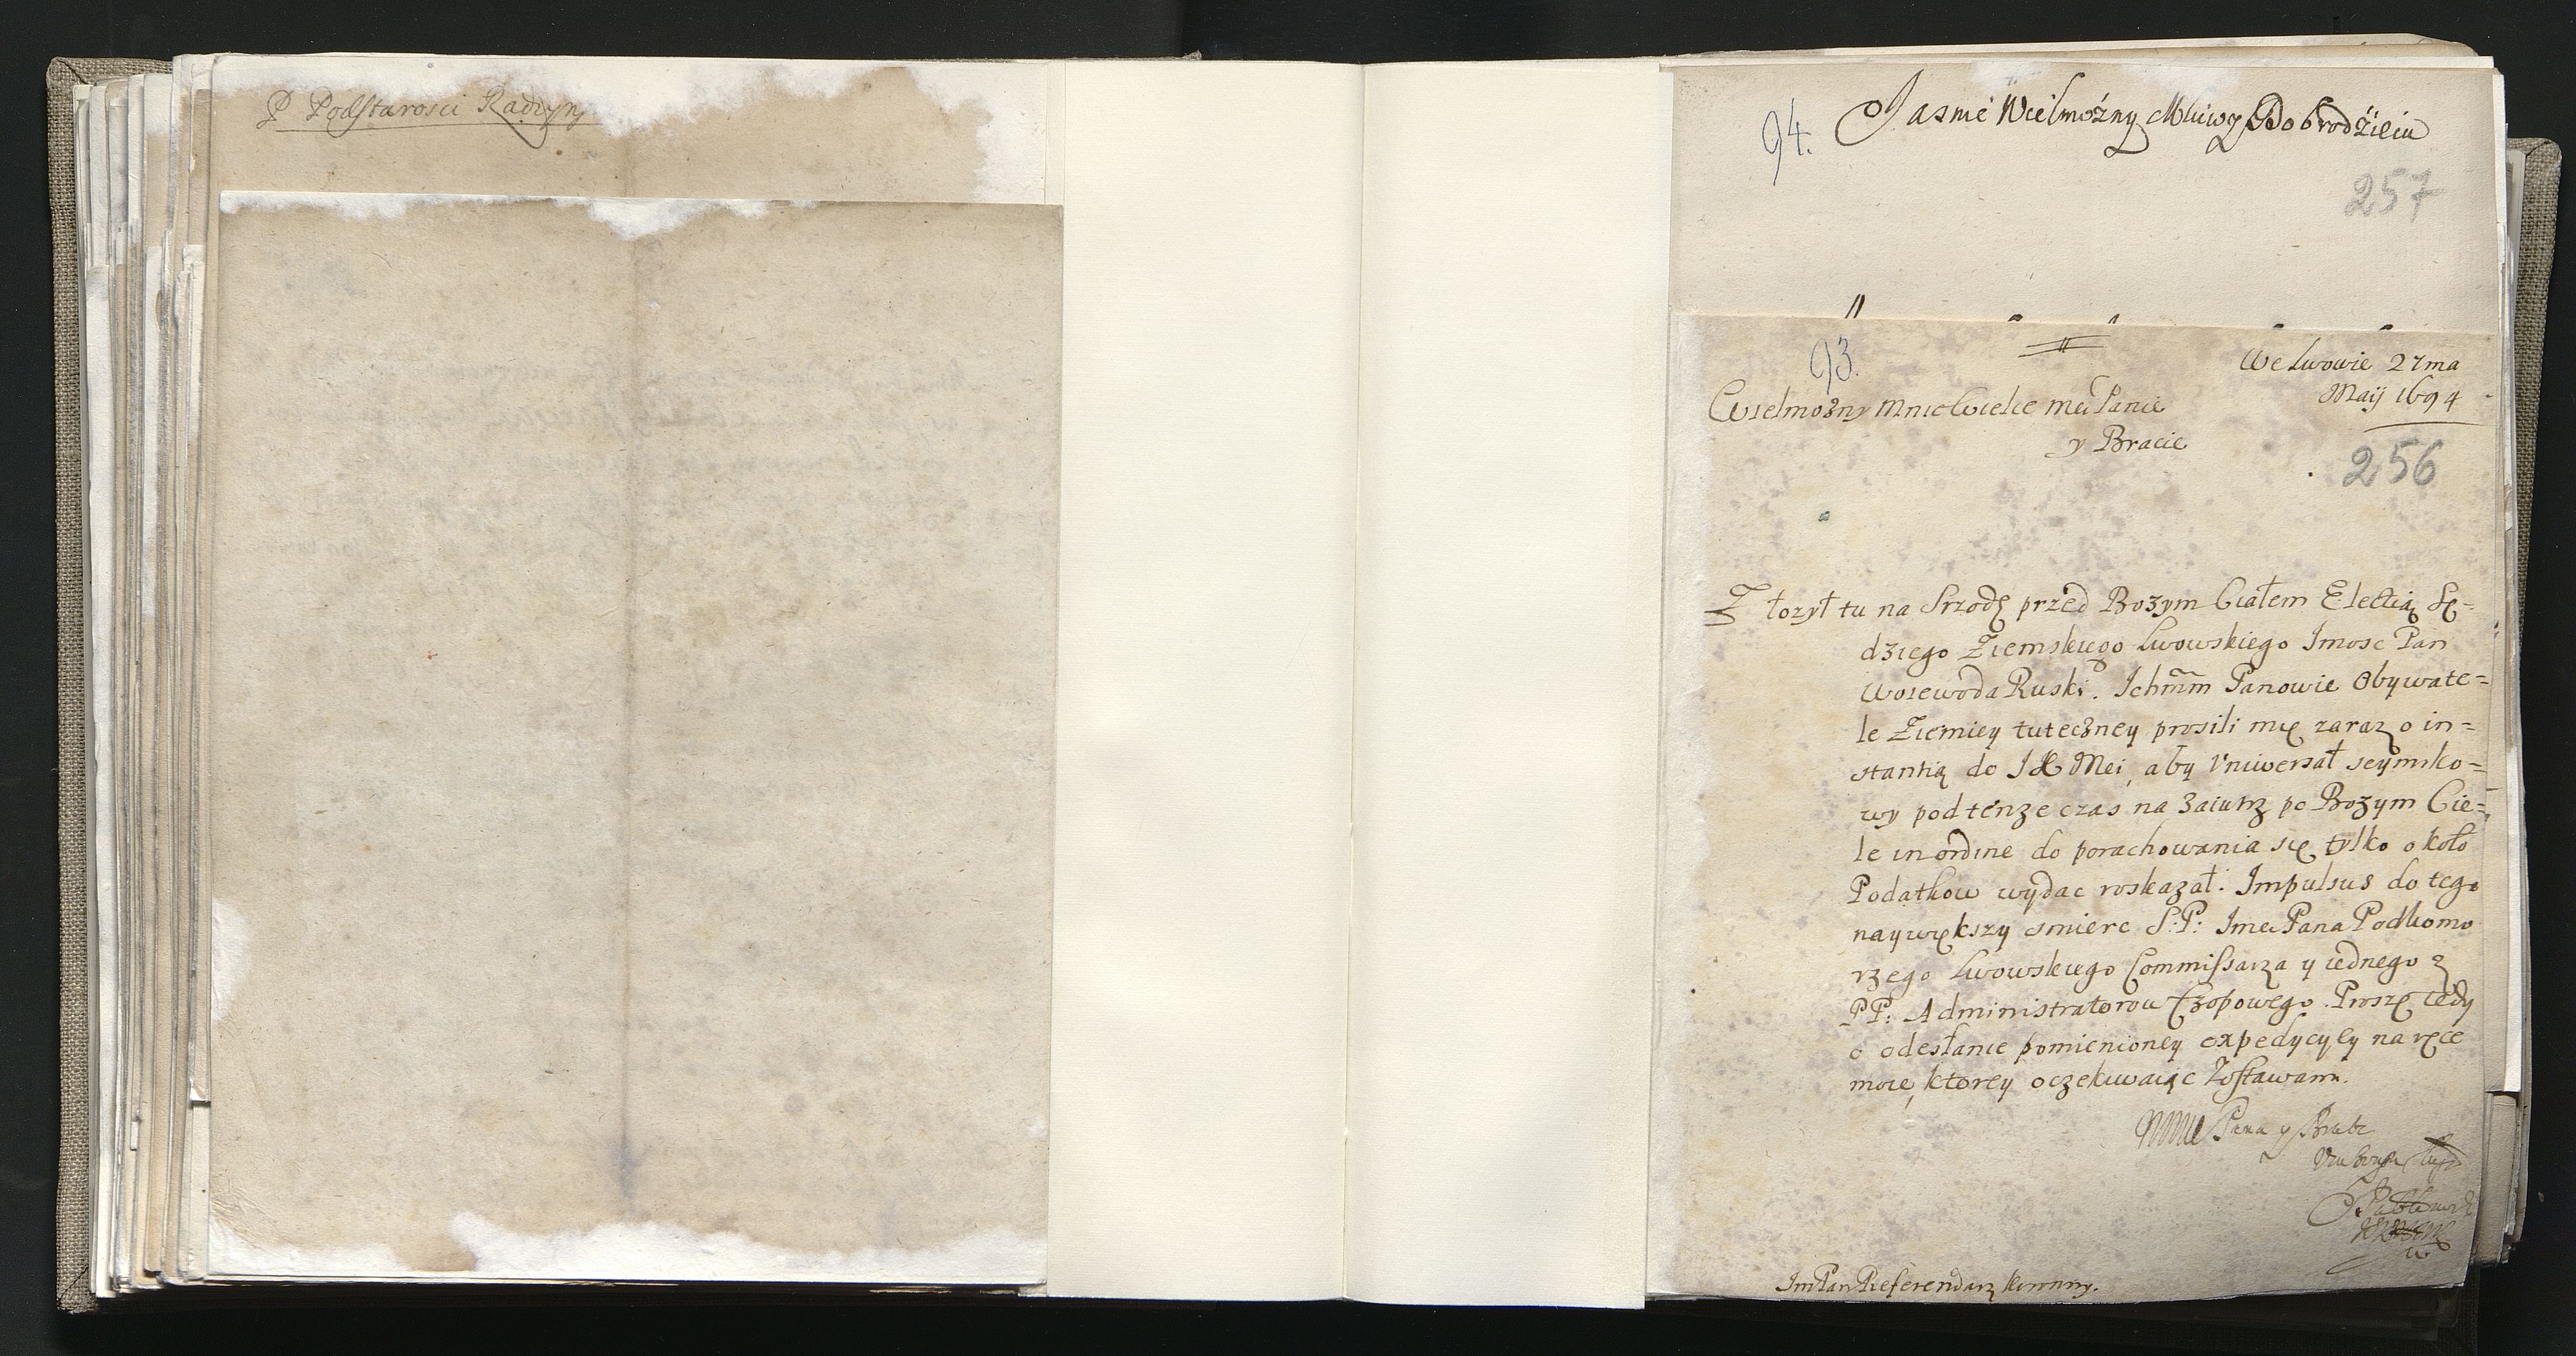 P Podstarosci Radzyn
94. Jasnie Wielmożny Mściwy Dobrodzieiu
257
93.
We Lwowie 27ma
Maij 1694
Wielmożny Mnie Wielce Mći Panie
y Bracie
256
Złozył tu na Srzodę przed Bozym Ciałem Elećtią Sę=
dziego Ziemskiego Lwowskiego Jmosc Pan
Woiewoda Ruski. Ichmm Panowie Obywate=
le Ziemiey tuteczney prosili mię zaraz o in=
stantią do JK Mci, aby Vniwersał seymiko=
wy pod tenze czas na zaiutrz po Bozym Cie=
le in ordine do porachowania się tylko około
Podatkow wydac roskazał. Impulsus do tego
naywiększy smierc S:P: Jmći Pana Podkomo
rzego Lwowskiego Commissarza y iednego z
PP: Administratorow Czopowego. Proszę tedy
o odesłanie pomienioney expedycyey na ręce
moie, ktorey oczekiwaiąc Zostawam.
Pana y Brata
JmPan Referendarz Koronny.